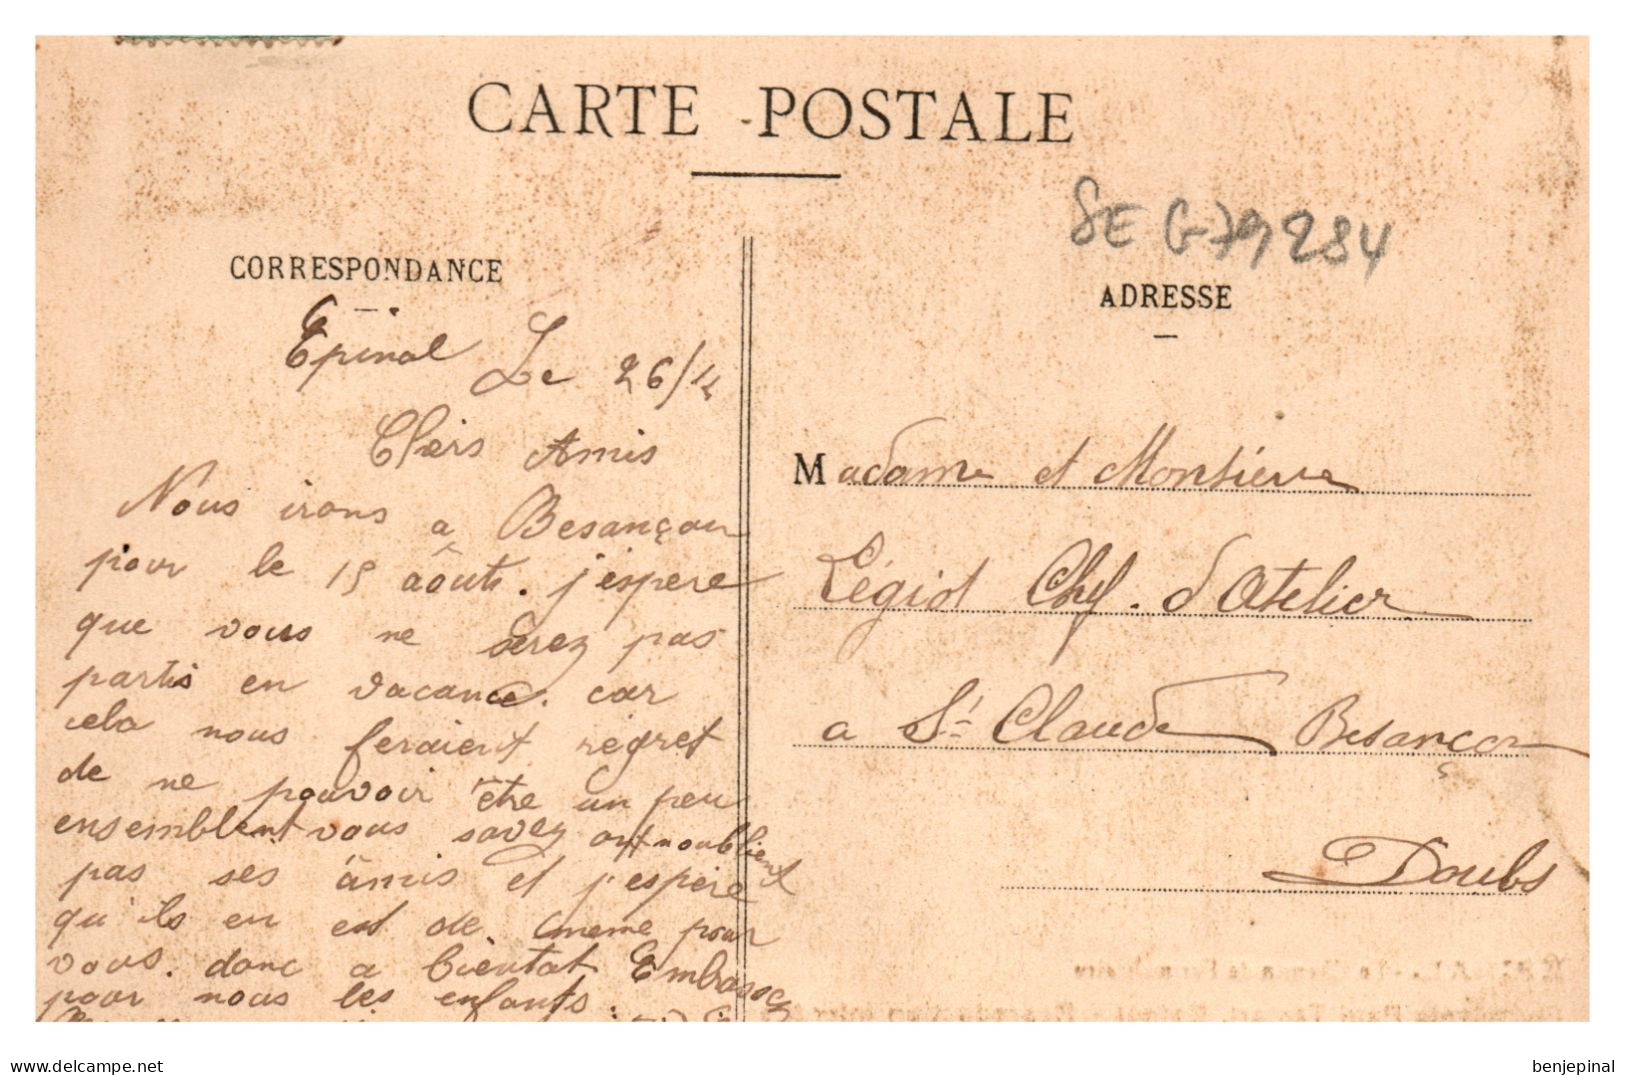 CARTE POSTALE
SE G79284
CORRESPONDANCE
ADRESSE
Epinal Le 26/
Chers Amis
Nous irons a Besançon
pour le 15 aôuts. j'espere
que vous ne serez pas
partis en vacance. car
cela nous feraient regret
de ne pouvoir être un peu
ensemblent vous savez ont noublient
pas ses âmis et j'espère
qu'ils en est de même pour
vous. donc a bientot Embrassez
pour nous les enfants.
Madame et Monsieur
Légiot Chef. d'Atelier
a St Claude Besançon
Doubs
www.delcampe.net
benjepinal